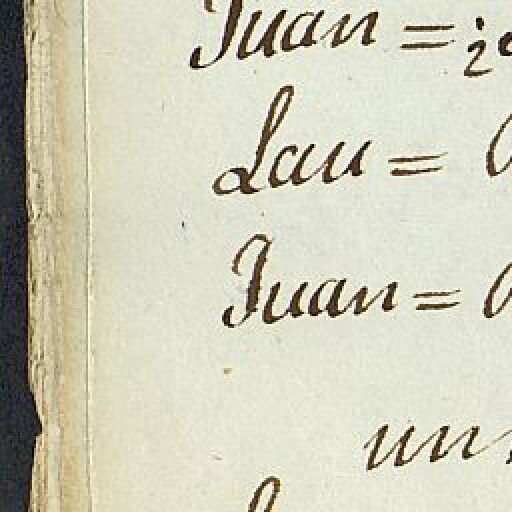 Juan =
Lau =
Juan =
un